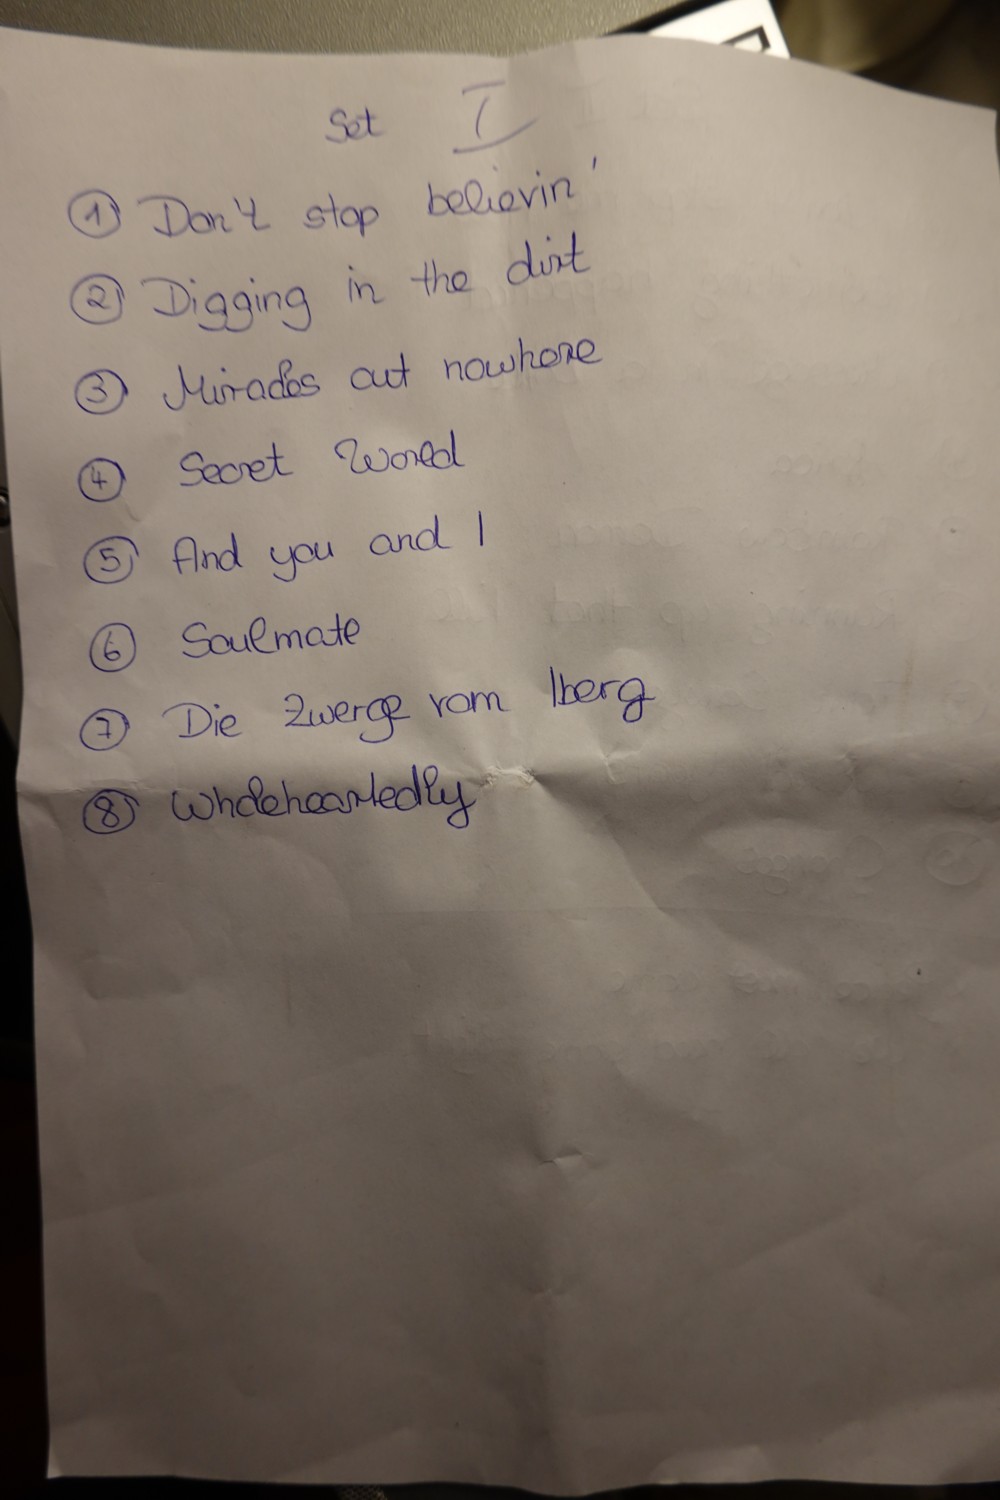 Set I
① Don't stop believin'
② Digging in the dirt
③ Miracles out nowhere
④ Secret World
⑤ And you and I
⑥ Soulmate
⑦ Die Zwerge vom Iberg
⑧ Wholeheartedly